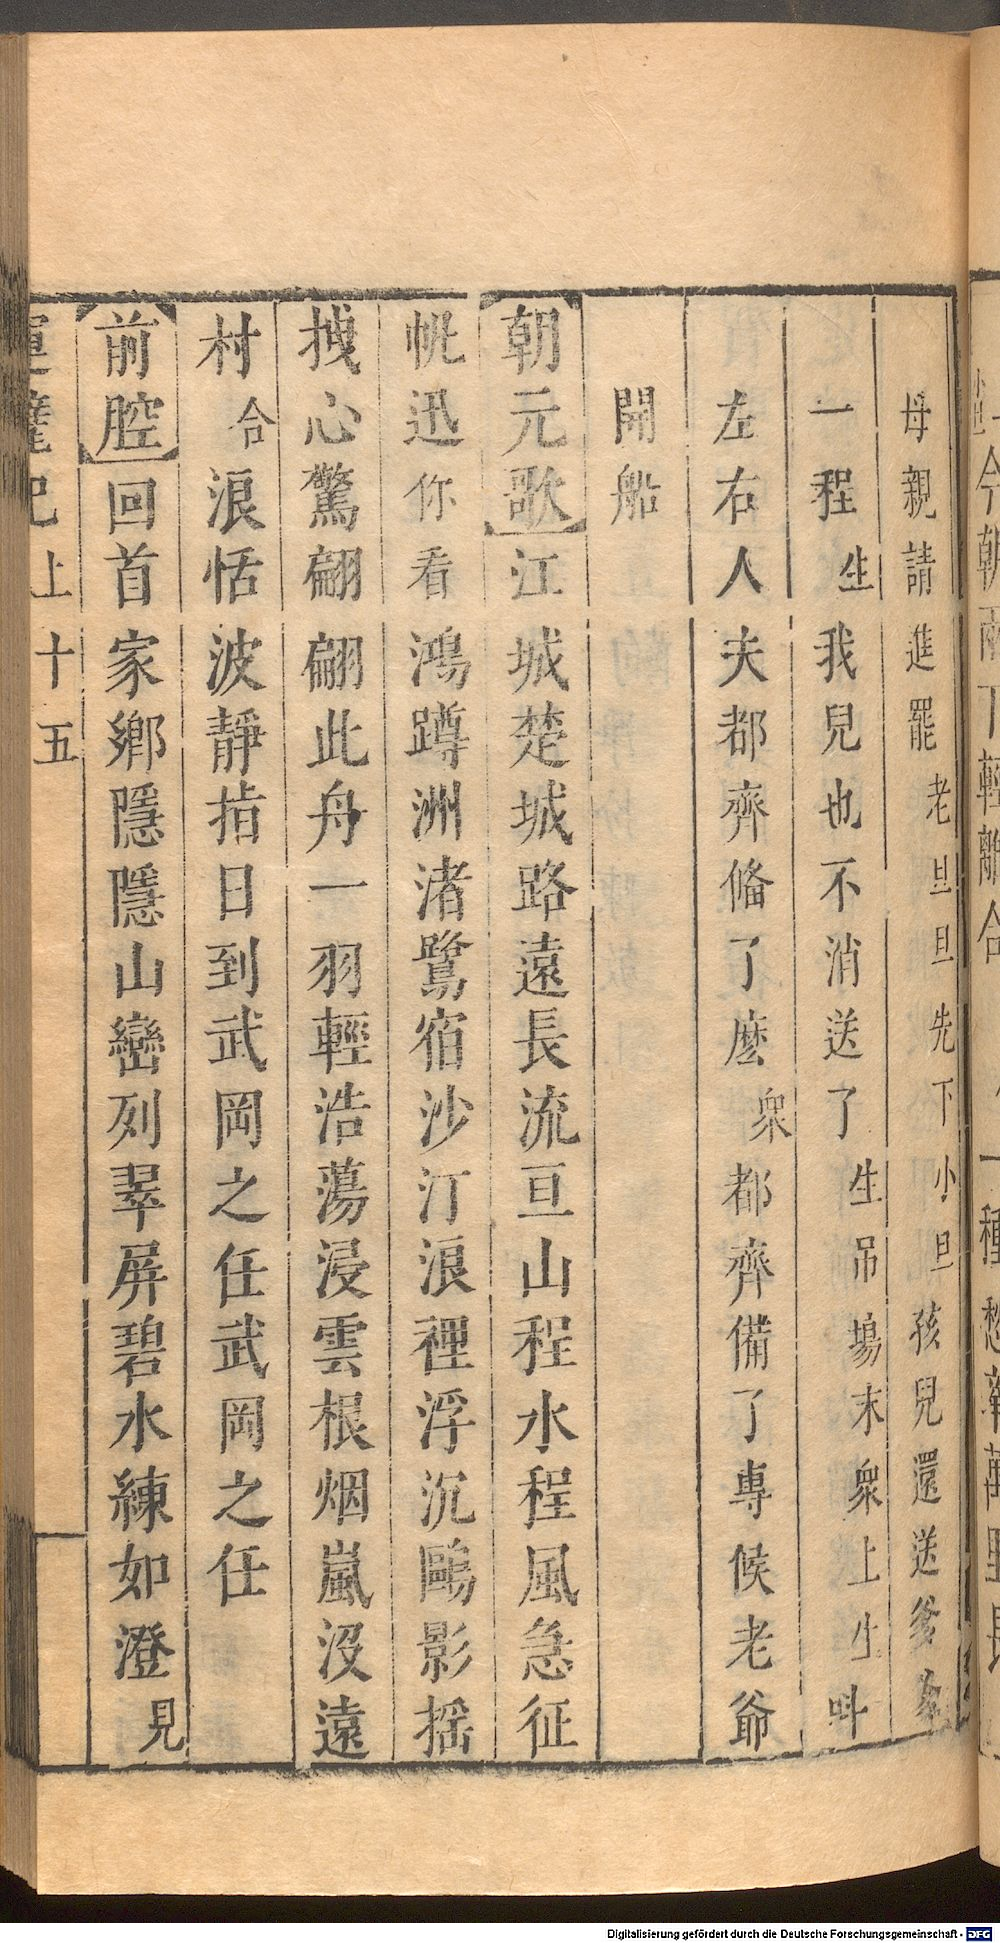 母親請進罷老旦旦先下小旦孩兒還送爹爹
一程生我兒也不消送了生吊場末衆上生呌
左右人夫都齊俻了麽衆都齊備了專候老爺
開船
朝元歌江城楚城路遠長流亘山程水程風急征
帆迅你看鴻蹲洲渚鷺宿沙汀浪裡浮沉鷗影揺
拽心驚翩翩此舟一羽輕浩蕩浸雲根烟嵐沒遠
村合浪恬波靜指日到武岡之任武岡之任
前腔回首家鄉隱隱山巒列翠屏碧水練如澄見
上十五
Digitalisierung gefördert durch die Deutsche Forschungsgemeinschaft - DFG